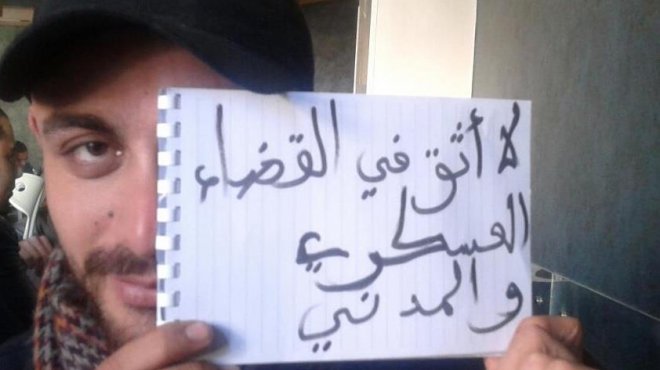 لا أثق في القضاء
العسكري
والمدني